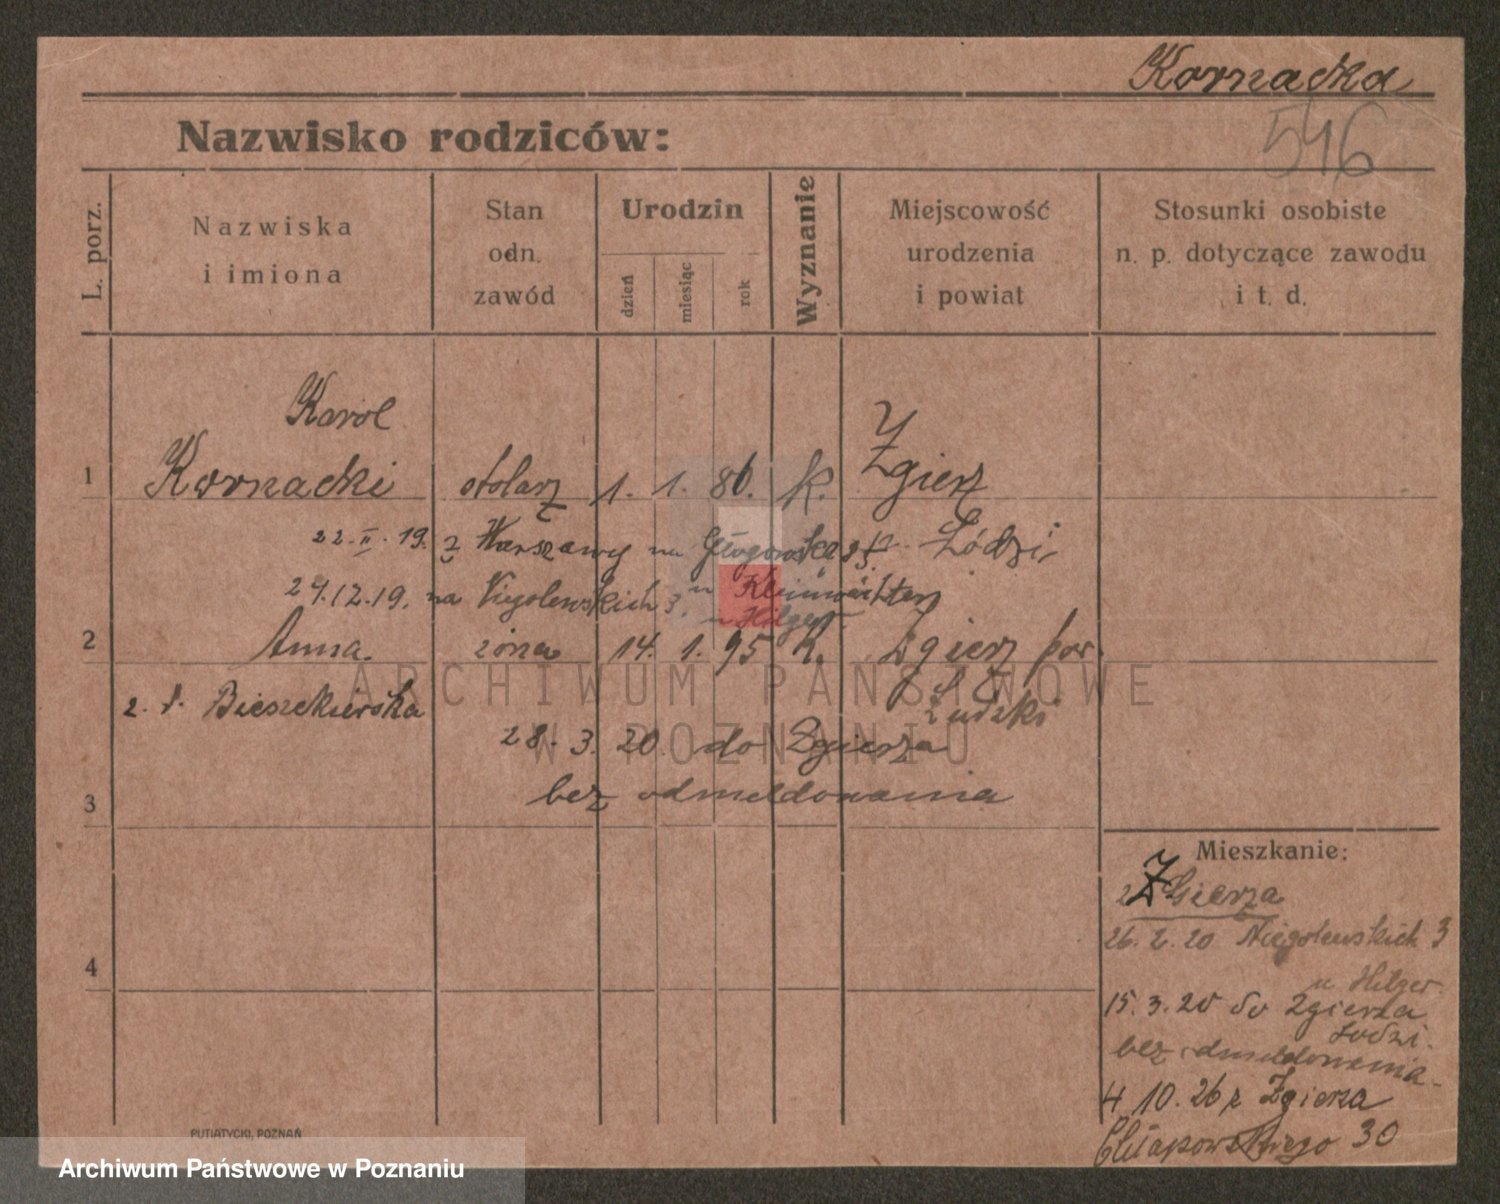 Kornacka
546
Nazwisko rodziców:
L. porz.
Nazwiska
i imiona
Stan
odn.
zawód
Urodzin
dzień
miesiąc
rok
Wyznanie
Miejscowość
urodzenia
i powiat
Stosunki osobiste
n. p. dotyczące zawodu
i t. d.
Karol
1 Kornacki stolarz 1. 1. 86. K. Zgierz
22. II. 19. z Warszawy na Głogowska Łódzi
29.12.19. na Niegolewskich 3.
u Hilger
2 Anna żona 14. 1. 95 K. Zgierz pow.
z. d. Bieszekierska Łudzki
28. 3. 20 do Zgierza
bez odmeldowania
3
4
Mieszkanie:
z Zgierza
26. 2. 20 Niegolewskich 3
u Hilger
15. 3. 20 do Zgierza
Łodzi
bez odmeldowania
4 10. 26 z Zgierza
Chłapowskiego 30
PUTIATYCKI, POZNAŃ
ARCHIWUM PAŃSTWOWE
W POZNANIU
Archiwum Państwowe w Poznaniu